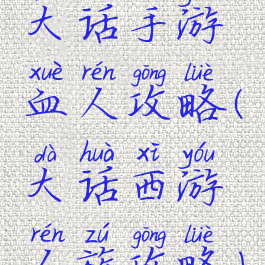 大话手游
xuè rén gōng lüè
血人攻略(
dà huà xī yóu
大话西游
rén zú gōng lüè
人族攻略)